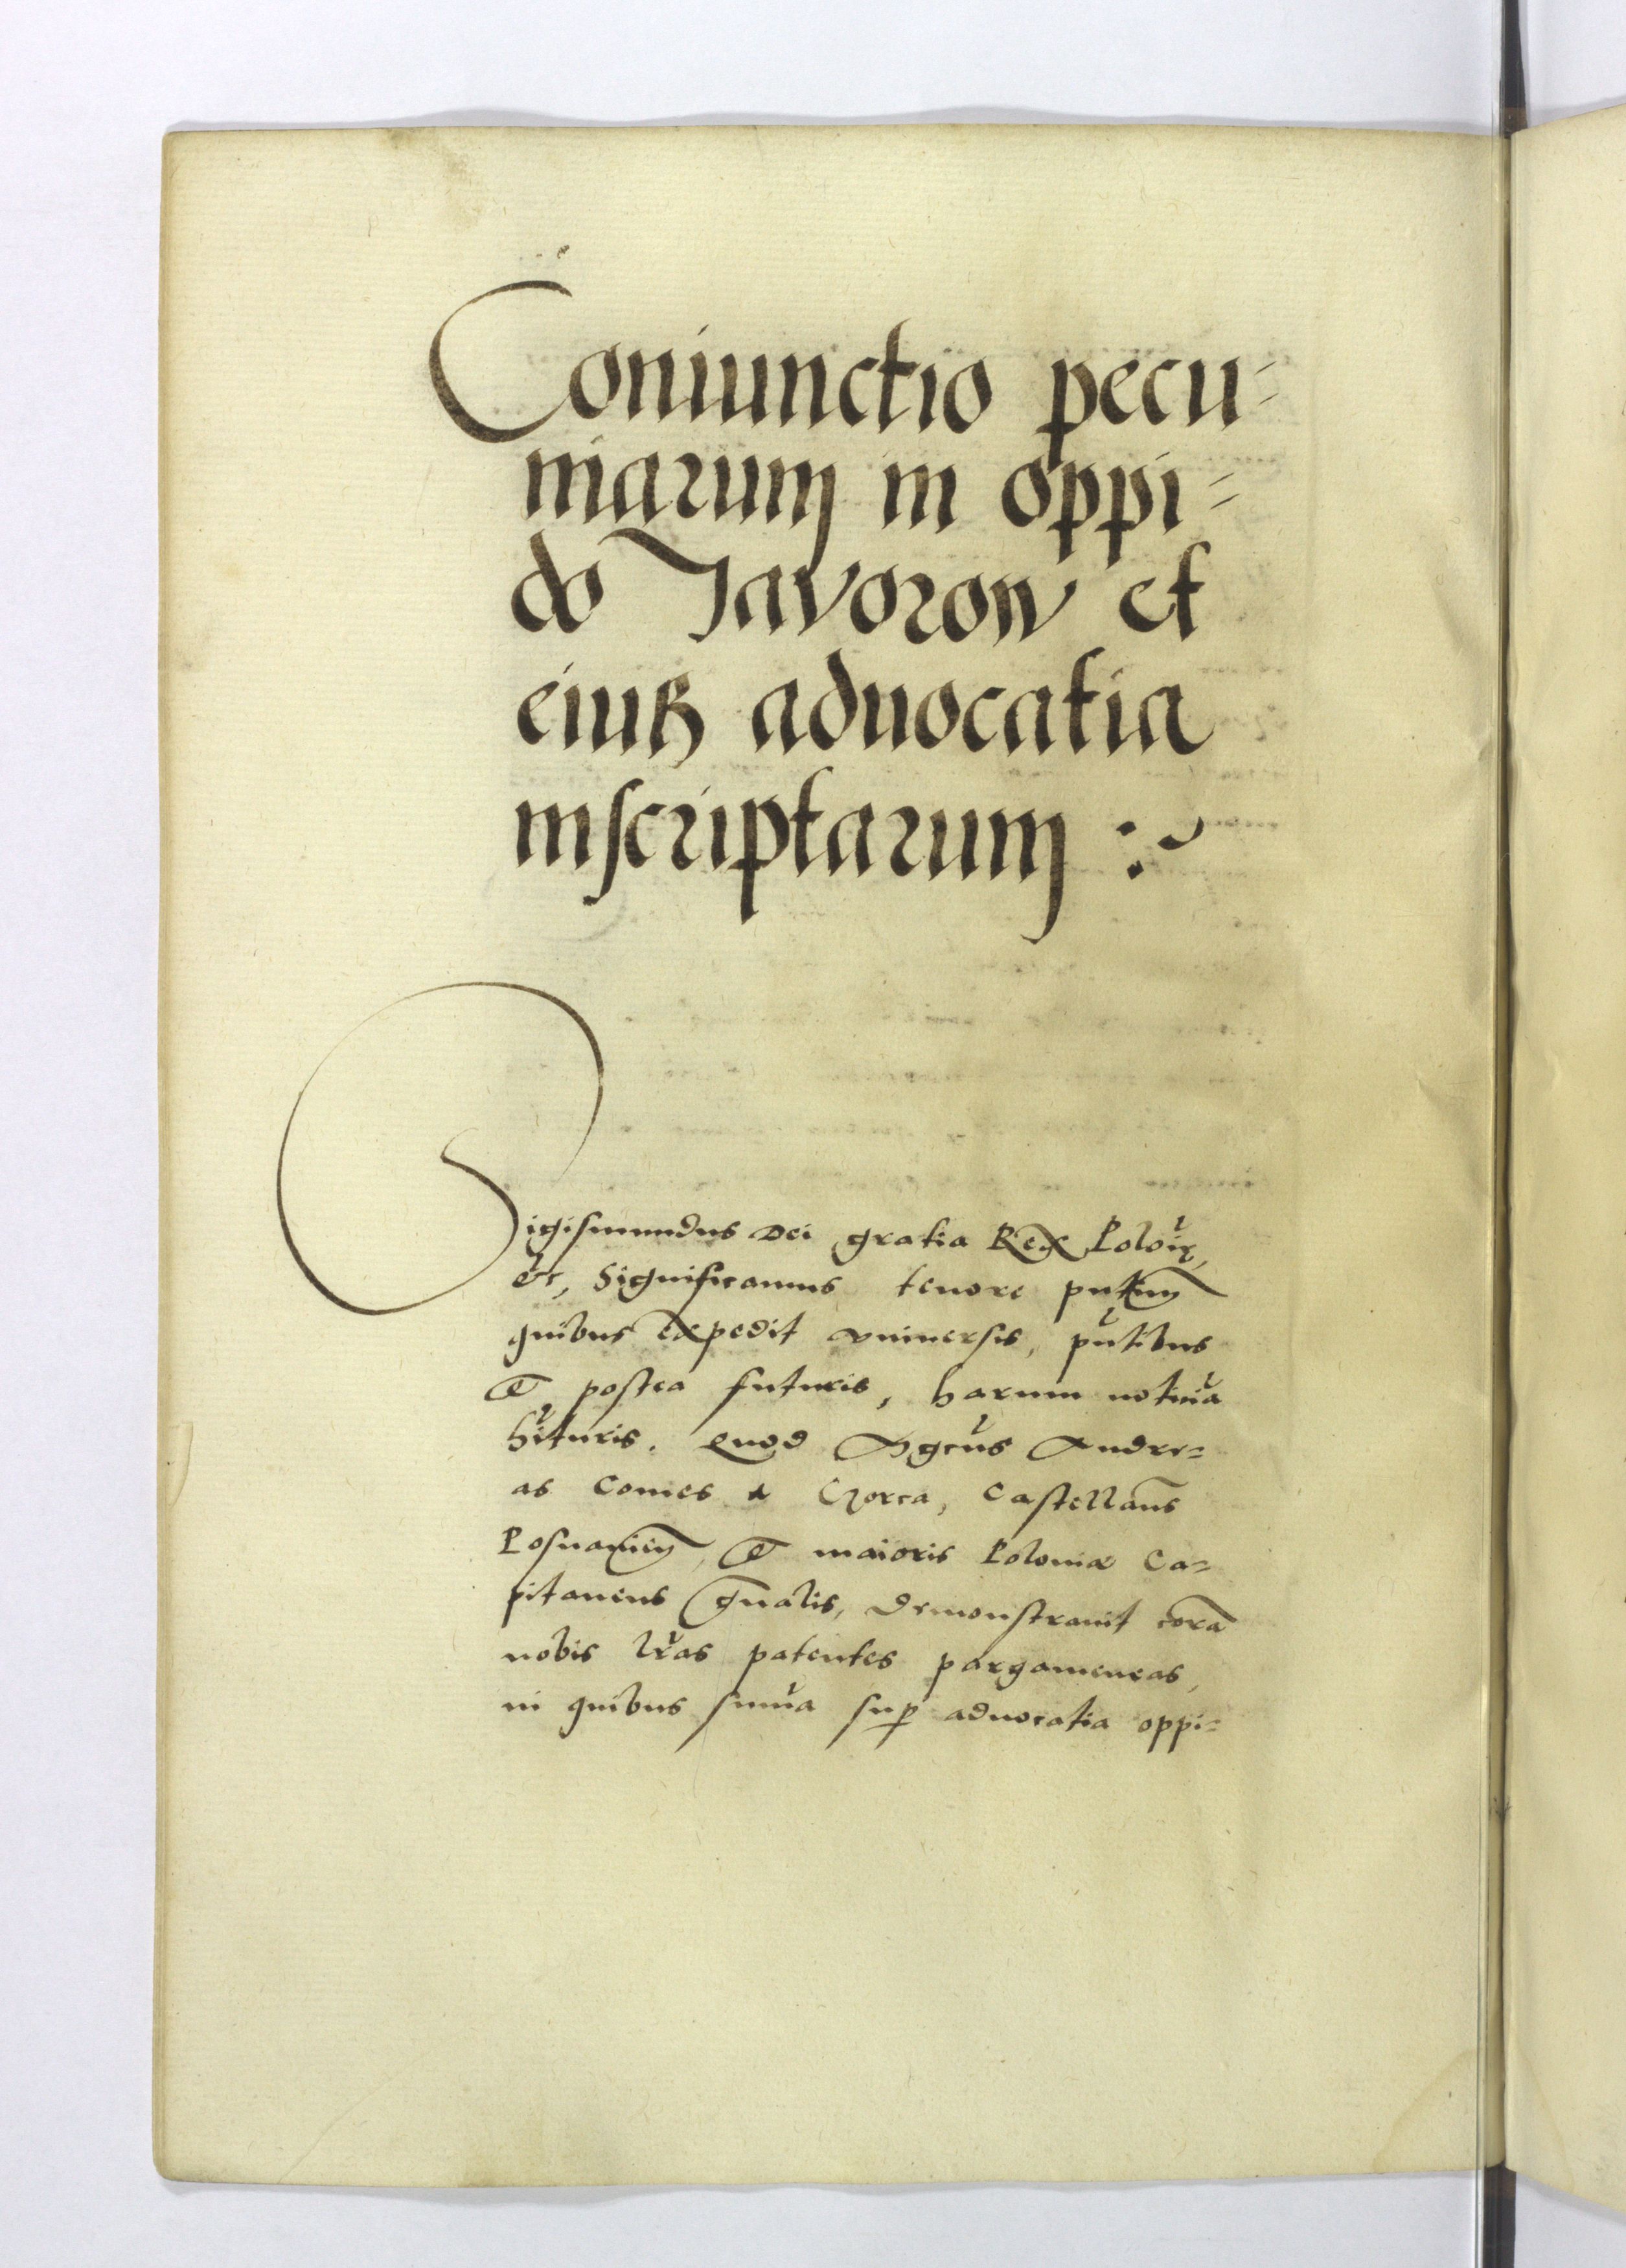 Coniunctio pecu=
niarum in oppi=
do Javorow et
eius advocatia
inscriptarum :~
Sigismundus Dei gratia Rex Poloie,
etc, Significamus tenore pntium
quibus expedit vniuersis, pntibus
et postea futuris, harum notitia
hituris. Quod Mgcus Andre=
as Comes a Gorca, Castellans
Posnanien, et maioris Poloniæ Ca=
pitaneus gnalis, demonstrauit cora
nobis lras patentes pargameneas,
in quibus suma sup aduocatia oppi=